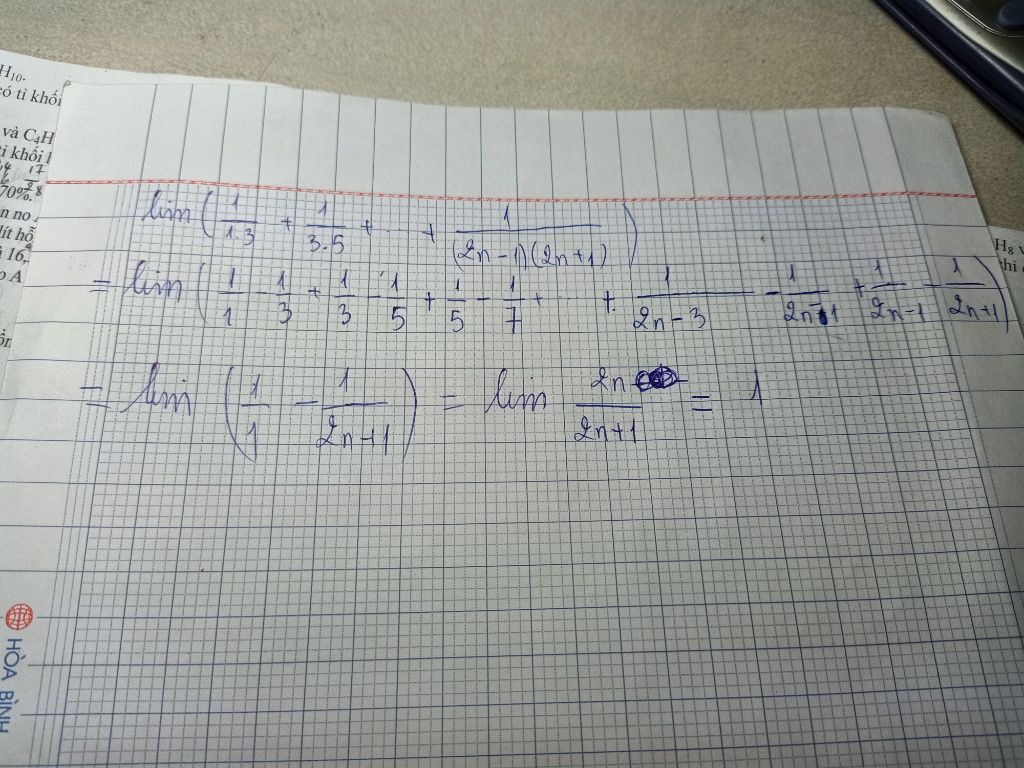 H₁₀.
có tỉ khối
và C₄H
tỉ khối
70%.
n no
lít hỗ
16,
A
lim ( 1/1.3 + 1/3.5 + ... + 1/(2n-1)(2n+1) )
= lim ( 1/1 - 1/3 + 1/3 - 1/5 + 1/5 - 1/7 + ... + 1/2n-3 - 1/2n-1 + 1/2n-1 - 1/2n+1 )
= lim ( 1/1 - 1/2n+1 ) = lim 2n/2n+1 = 1
H₈
HÒA BÌNH